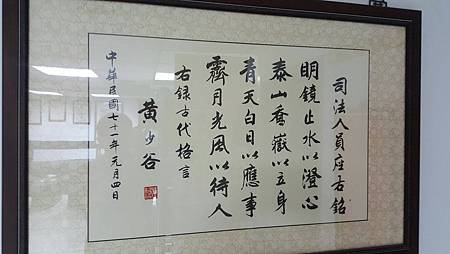 司法人員座右銘
明鏡止水以澄心
泰山喬嶽以立身
青天白日以應事
霽月光風以待人
右録古代格言
黃少谷
中華民國七十一年元月四日